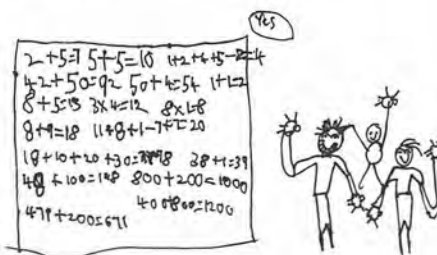 Yes
2+5=7 5+5=10 1+2+4+5-8=4
42+50=92 50+4=54 1+1=2
8+5=13 3x4=12 8x1=8
8+9=18 11+8+1-7+7=20
18+10+20+30=78
38+1=39
48+100=148 800+200=1000
400+800=1200
479+200=671